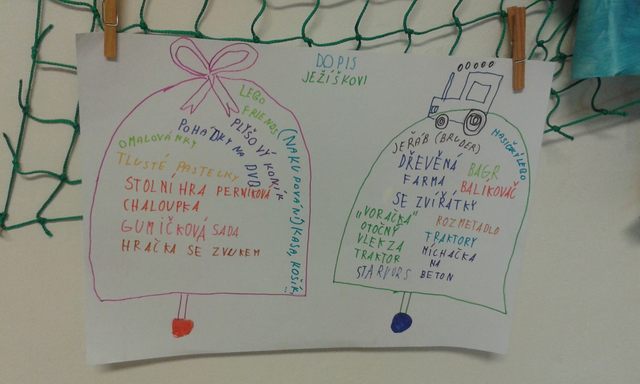 DOPIS
JEŽÍŠKOVI
LEGO
FRIENDS
PLYŠOVÝ KONÍK
POHÁDKY NA DVD
OMALOVÁNKY
TLUSTÉ PASTELKY
STOLNÍ HRA PERNÍKOVÁ
CHALOUPKA
GUMIČKOVÁ SADA
HRAČKA SE ZVUKEM
(NAKUPOVÁNÍ) KASA, KOŠÍK
JEŘÁB (BRUDER)
HASIČSKÝ LEGO
DŘEVĚNÁ
FARMA
SE ZVÍŘÁTKY
BAGR
BALIKOVAČ
"VORAČKA"
OTOČNÝ
VLEK ZA
TRAKTOR
STARVORS
ROZMETADLO
TRAKTORY
MÍCHAČKA
NA
BETON